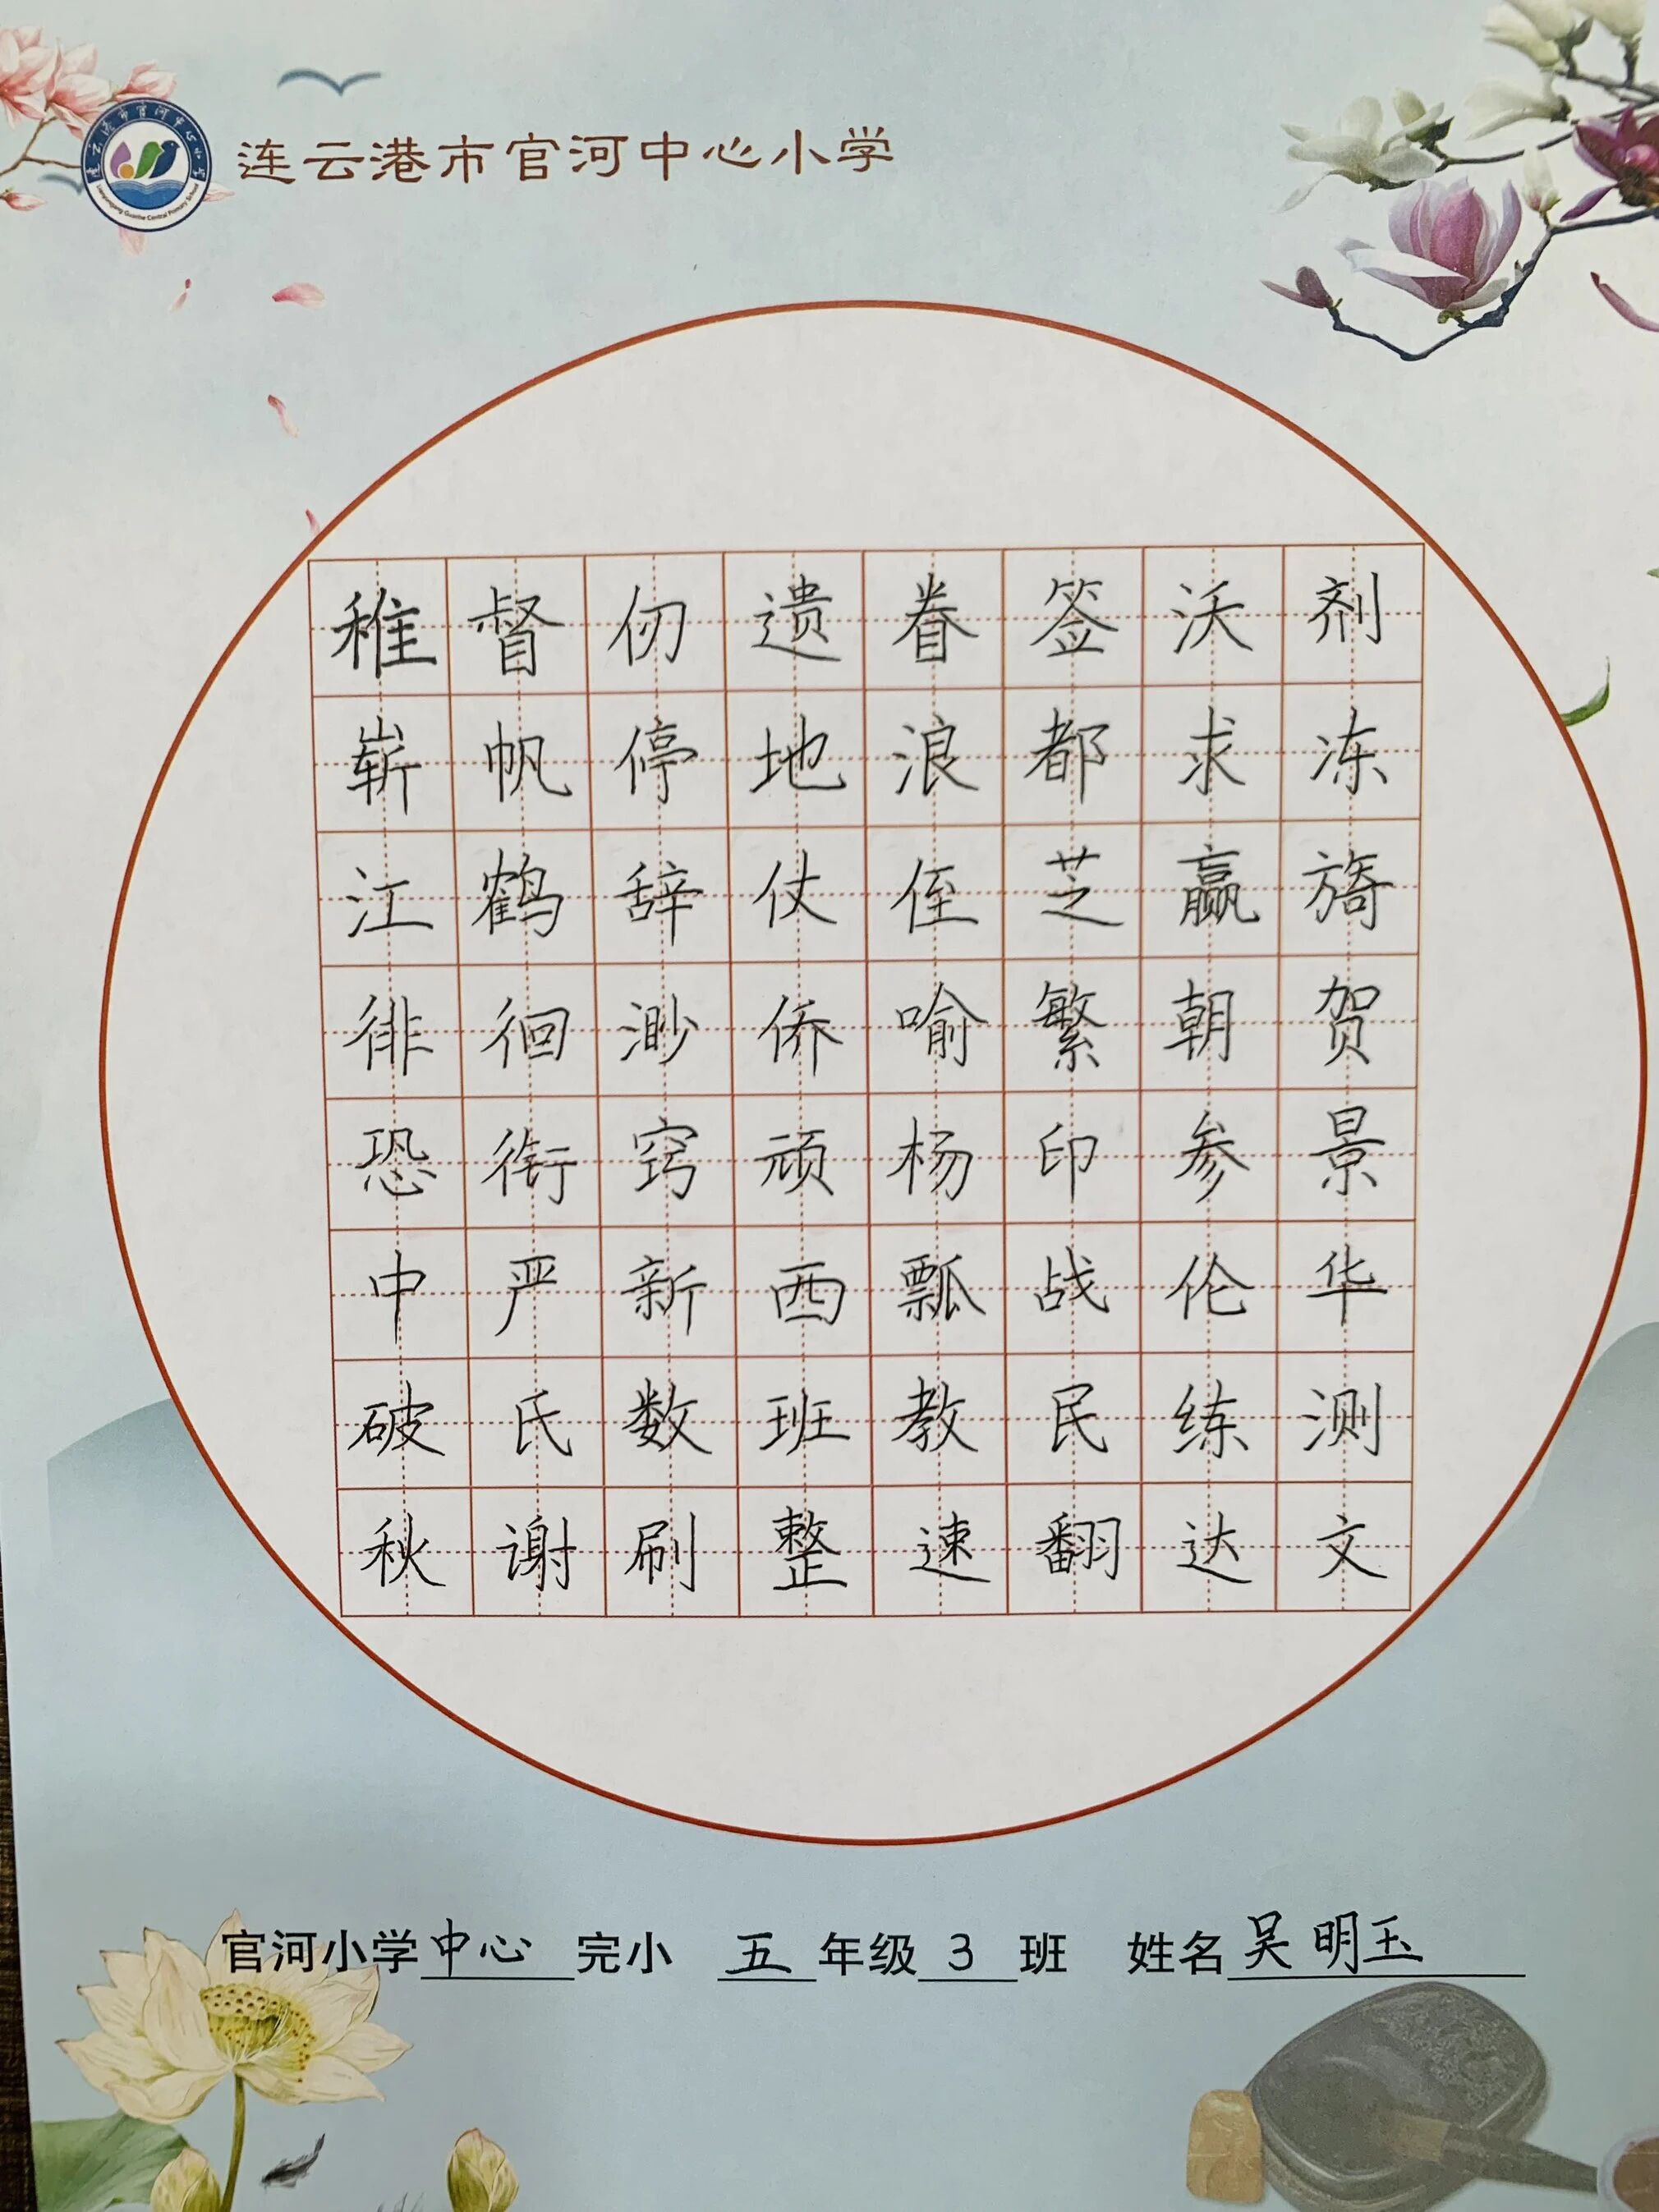 连云港市官河中心小学
稚督仞遗眷签沃剂
崭帆停地浪都求冻
江鹤辞仗侄芝赢旖
徘徊渺侨喻繁朝贺
恐衔窍顽杨印参景
中严新西瓢战伦华
破氏数班教民练测
秋谢刷整速翻达文
官河小学中心完小 五年级3班 姓名吴明玉